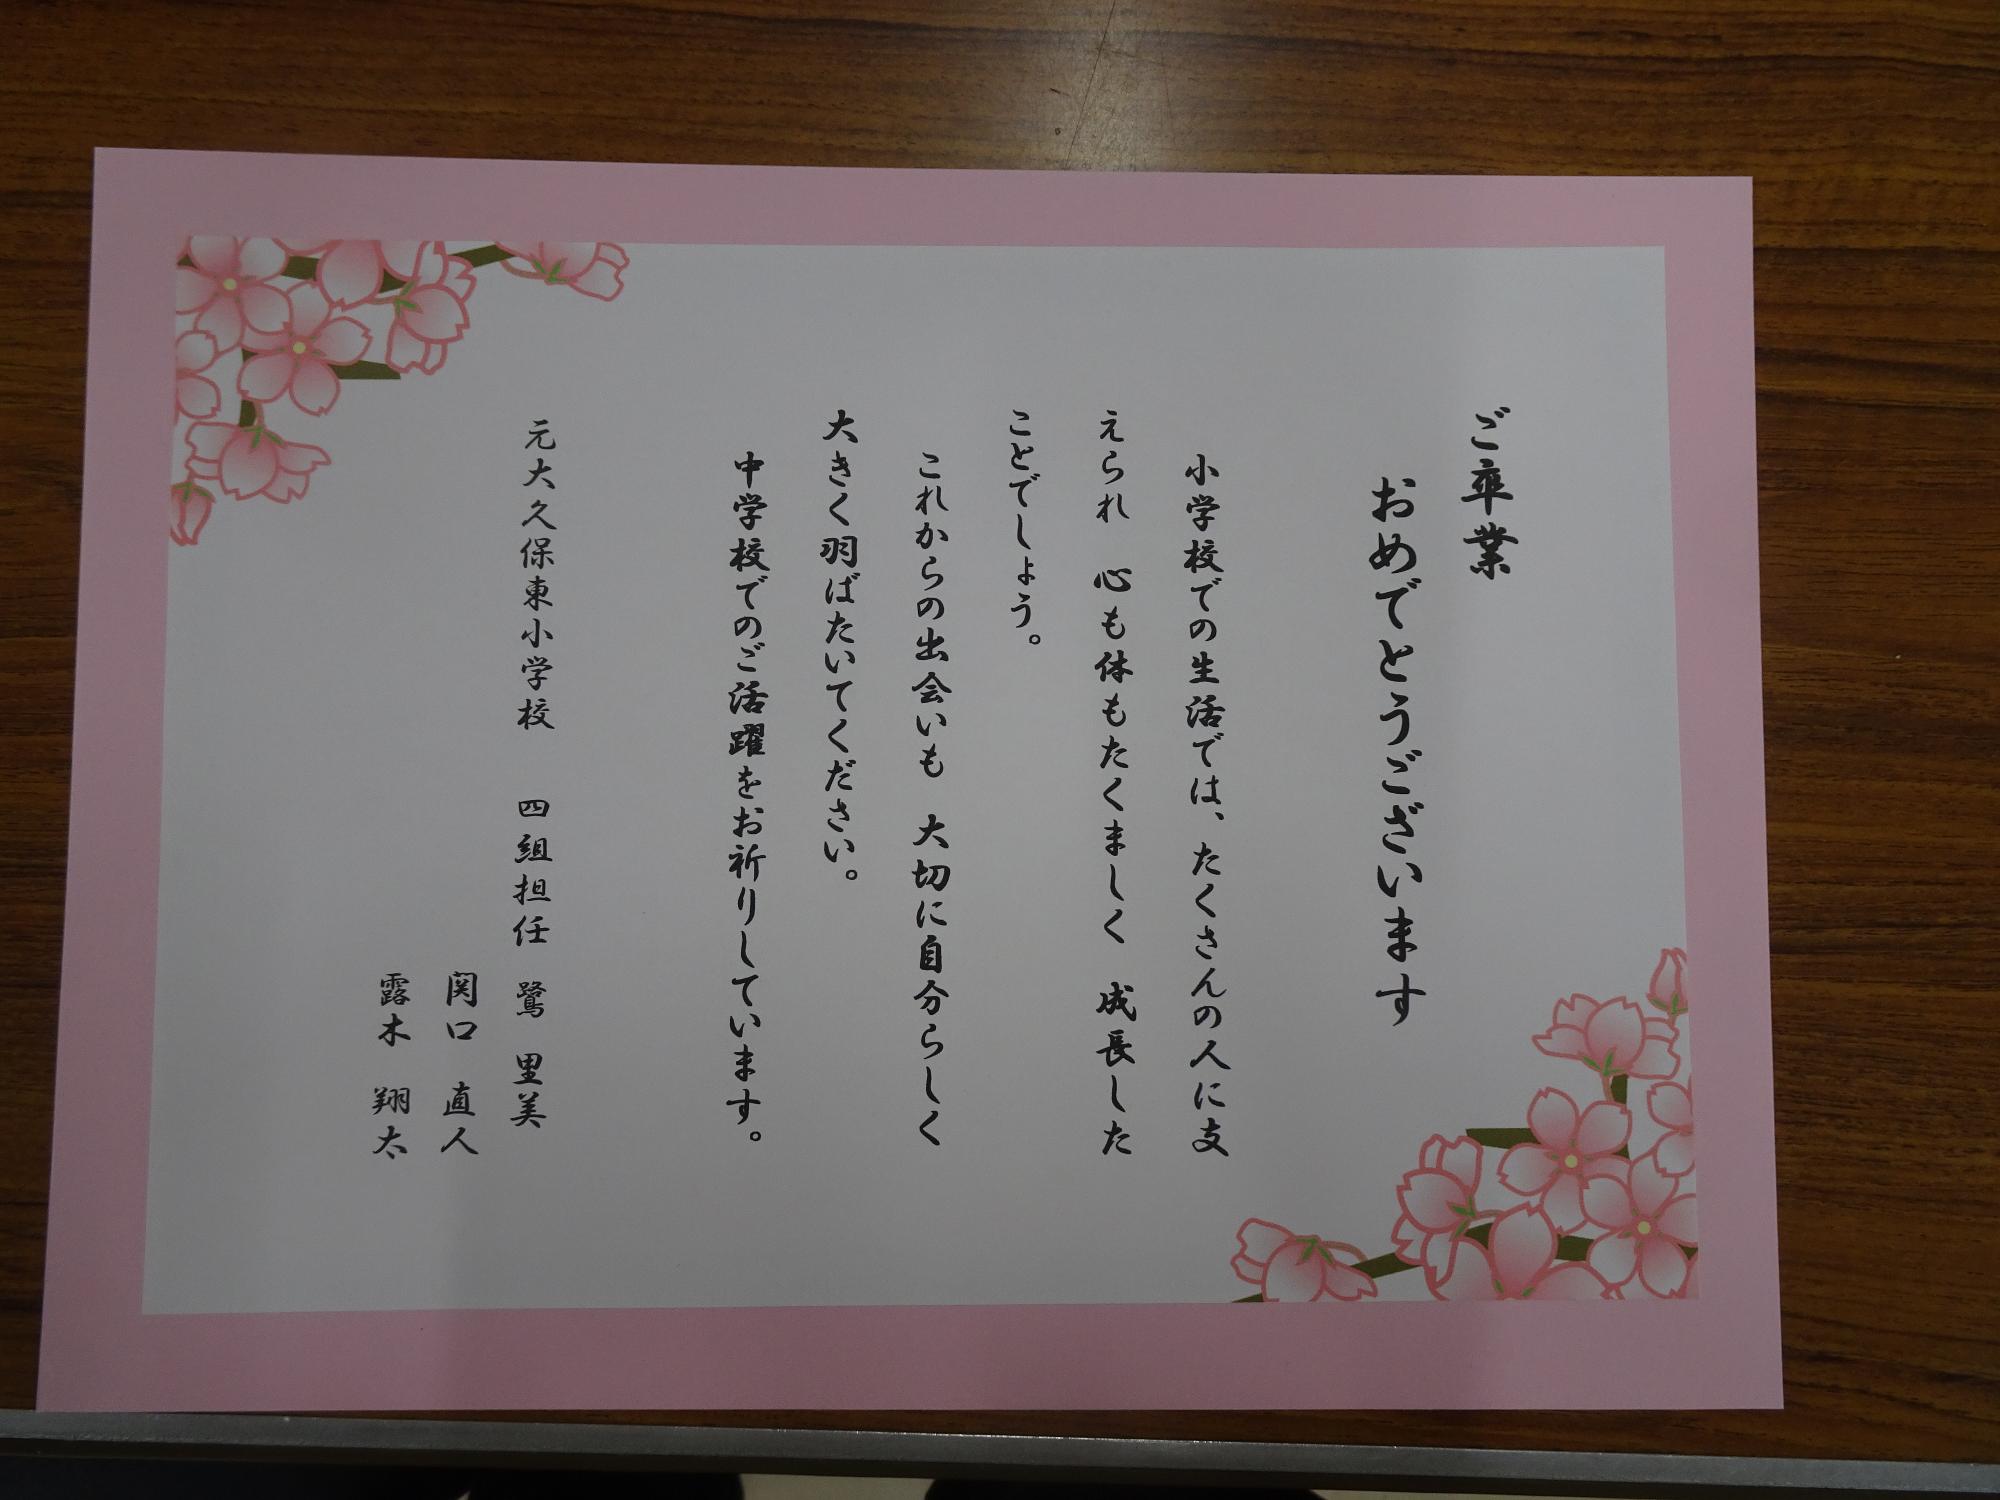 ご卒業
おめでとうございます
小学校での生活では、たくさんの人に支
えられ 心も体もたくましく 成長した
ことでしょう。
これからの出会いも 大切に自分らしく
大きく羽ばたいてください。
中学校でのご活躍をお祈りしています。
元大久保東小学校 四組担任 鷺 里美
関口 直人
露木 翔太